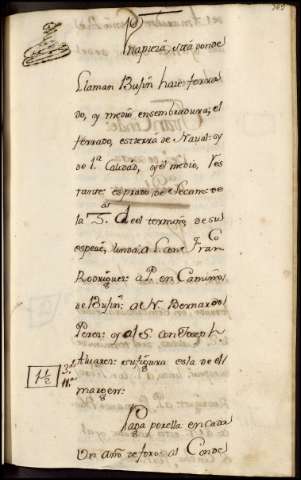 Una pieza, sita donde
llaman Bustin haze ferra
do, y medio ensembradura; el
ferrado, es tierra de Naval: y
de 1ª Calidad, y el medio, res
tante: es prado de Secano: de
la
3ª
del termino, de su
especie, linda: a L. con Fran.co
Rodriguez: a P. en Camino
de Bustin: al N. Bernardo
Perez: y al S. con Joseph
Alvarez: su figura es la de el
margen:
1 1/2
Paga por ella en cada
un año de foro al Conde